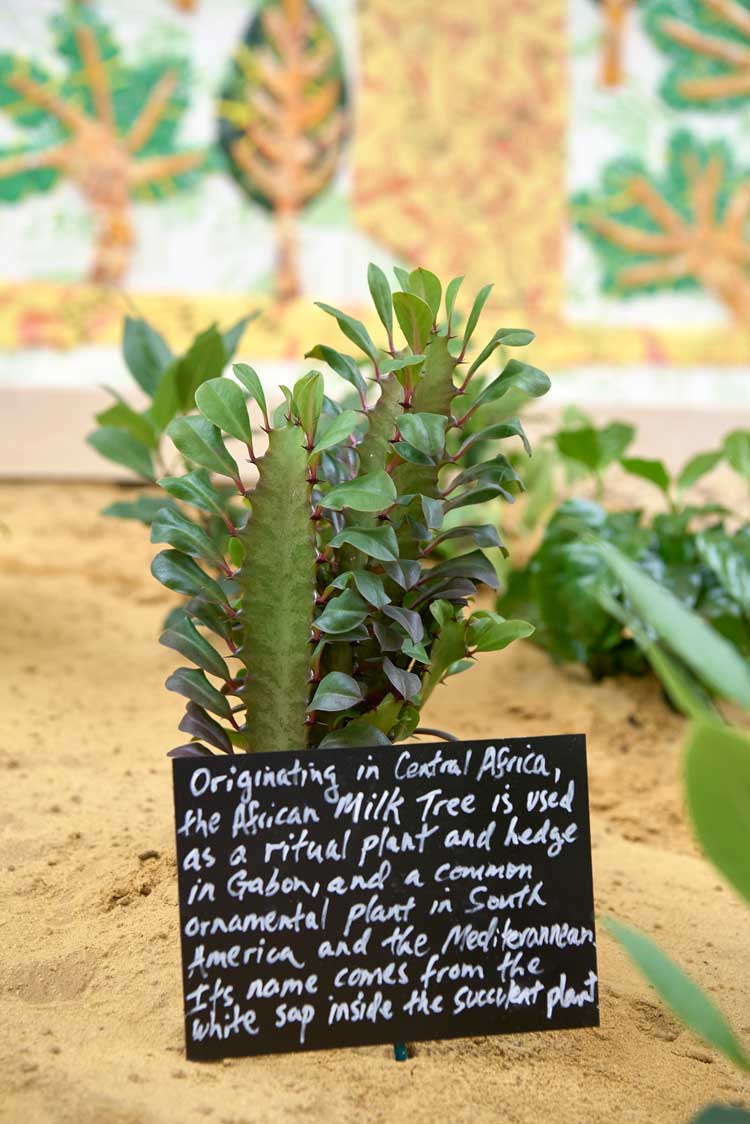 Originating in Central Africa,
the African Milk Tree is used
as a ritual plant and hedge
in Gabon, and a common
ornamental plant in South
America and the Mediterannean.
Its name comes from the
white sap inside the succulent plant